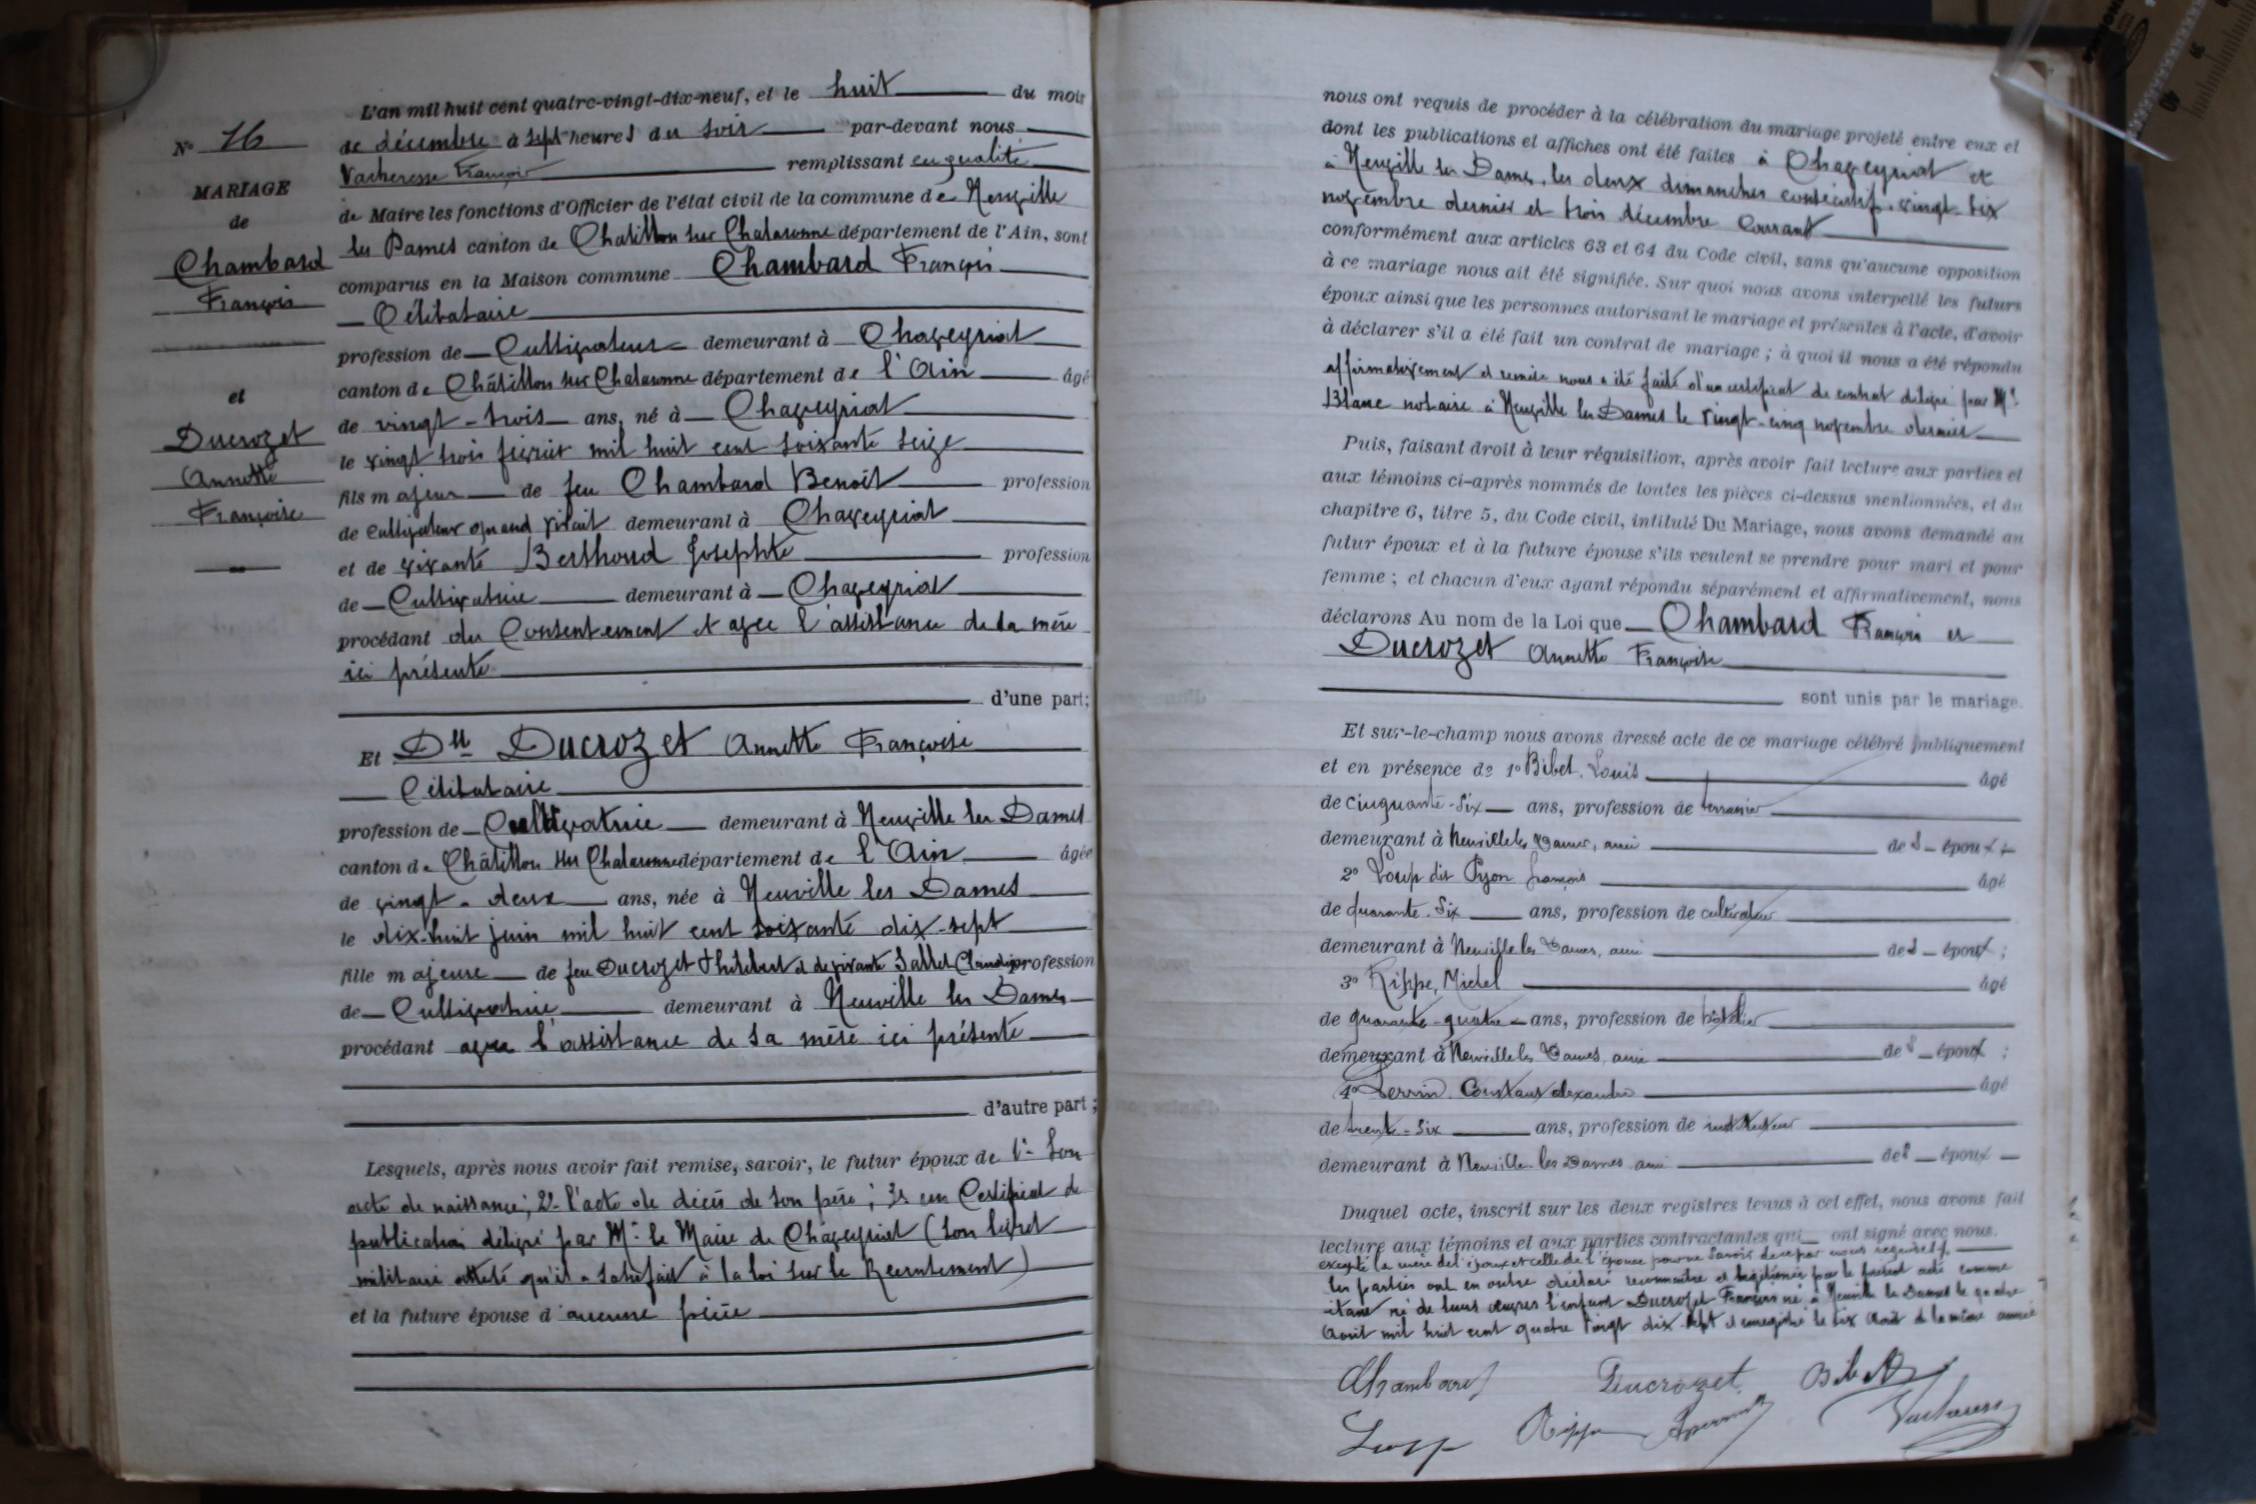 L'an mil huit cent quatre-vingt-dix-neuf, et le huit du mois
de décembre à sept heures du soir par-devant nous
Vacheresse François remplissant en qualité
de Maire les fonctions d'Officier de l'état civil de la commune de Neuville
les Dames canton de Chatillon sur Chalaronne département de l'Ain, sont
comparus en la Maison commune Chambard François
Célibataire
profession de Cultivateur demeurant à Chaveyriat
canton de Châtillon sur Chalaronne département de l'Ain âgé
de vingt-trois ans, né à Chaveyriat
le vingt trois février mil huit cent soixante seize
fils majeur de feu Chambard Benoît profession
de cultivateur quand vivait demeurant à Chaveyriat
et de vivante Berthoud Josephte profession
de Cultivatrice demeurant à Chaveyriat
procédant du Consentement et avec l'assistance de la mère
ici présente
d'une part;
Et Dlle Ducrozet Annette Françoise
Célibataire
profession de Cultivatrice demeurant à Neuville les Dames
canton de Châtillon sur Chalaronne département de l'Ain âgée
de vingt-deux ans, née à Neuville les Dames
le dix-huit juin mil huit cent soixante dix-sept
fille majeure de feu Ducrozet Philibert et de vivante Sallet Claudine profession
de Cultivatrice demeurant à Neuville les Dames
procédant avec l'assistance de sa mère ici présente
d'autre part;
Lesquels, après nous avoir fait remise, savoir, le futur époux de 1° Son
acte de naissance; 2° l'acte de décès de son père; 3° un Certificat de
publication délivré par Mr le Maire de Chaveyriat (son livret
militaire atteste qu'il a satisfait à la loi sur le Recrutement)
et la future épouse d'aucune pièce
N° 16
MARIAGE
de
Chambard
François
et
Ducrozet
Annette
Françoise
nous ont requis de procéder à la célébration du mariage projeté entre eux et
dont les publications et affiches ont été faites à Chaveyriat et
à Neuville les Dames, les deux dimanches consécutifs vingt-six
novembre dernier et trois décembre Courant
conformément aux articles 63 et 64 du Code civil, sans qu'aucune opposition
à ce mariage nous ait été signifiée. Sur quoi nous avons interpellé les futurs
époux ainsi que les personnes autorisant le mariage et présentes à l'acte, d'avoir
à déclarer s'il a été fait un contrat de mariage; à quoi il nous a été répondu
affirmativement et remise nous a été faite d'un certificat de contrat délivré par Me
Blanc notaire à Neuville les Dames le vingt-cinq novembre dernier
Puis, faisant droit à leur réquisition, après avoir fait lecture aux parties et
aux témoins ci-après nommés de toutes les pièces ci-dessus mentionnées, et du
chapitre 6, titre 5, du Code civil, intitulé Du Mariage, nous avons demandé au
futur époux et à la future épouse s'ils veulent se prendre pour mari et pour
femme; et chacun d'eux ayant répondu séparément et affirmativement, nous
déclarons Au nom de la Loi que Chambard François et
Ducrozet Annette Françoise
sont unis par le mariage.
Et sur-le-champ nous avons dressé acte de ce mariage célébré publiquement
et en présence de 1° Bibet, Louis âgé
de cinquante-six ans, profession de terrassier
demeurant à Neuville les Dames, ami des époux
2° Loup dit Pyon françois âgé
de quarante-six ans, profession de cultivateur
demeurant à Neuville les Dames, ami des époux;
3° Rippe, Michel âgé
de quarante-quatre ans, profession de hôtelier
demeurant à Neuville les Dames, ami des époux;
4° Perrin Constant Alexandre âgé
de trente-six ans, profession de instituteur
demeurant à Neuville les Dames ami des époux
Duquel acte, inscrit sur les deux registres tenus à cet effet, nous avons fait
lecture aux témoins et aux parties contractantes qui ont signé avec nous.
excepté la mère de l'époux et celle de l'épouse pour ne savoir de ce par nous requises
les parties ont en outre déclaré reconnaître et légitimer par le présent acte comme
étant né de leurs œuvres l'enfant Ducrozet François né à Neuville les Dames le quatre
août mil huit cent quatre vingt dix-sept et enregistré le six août de la même année
Chambard Ducrozet Bibet
Loup Rippe Perrin Vacheresse